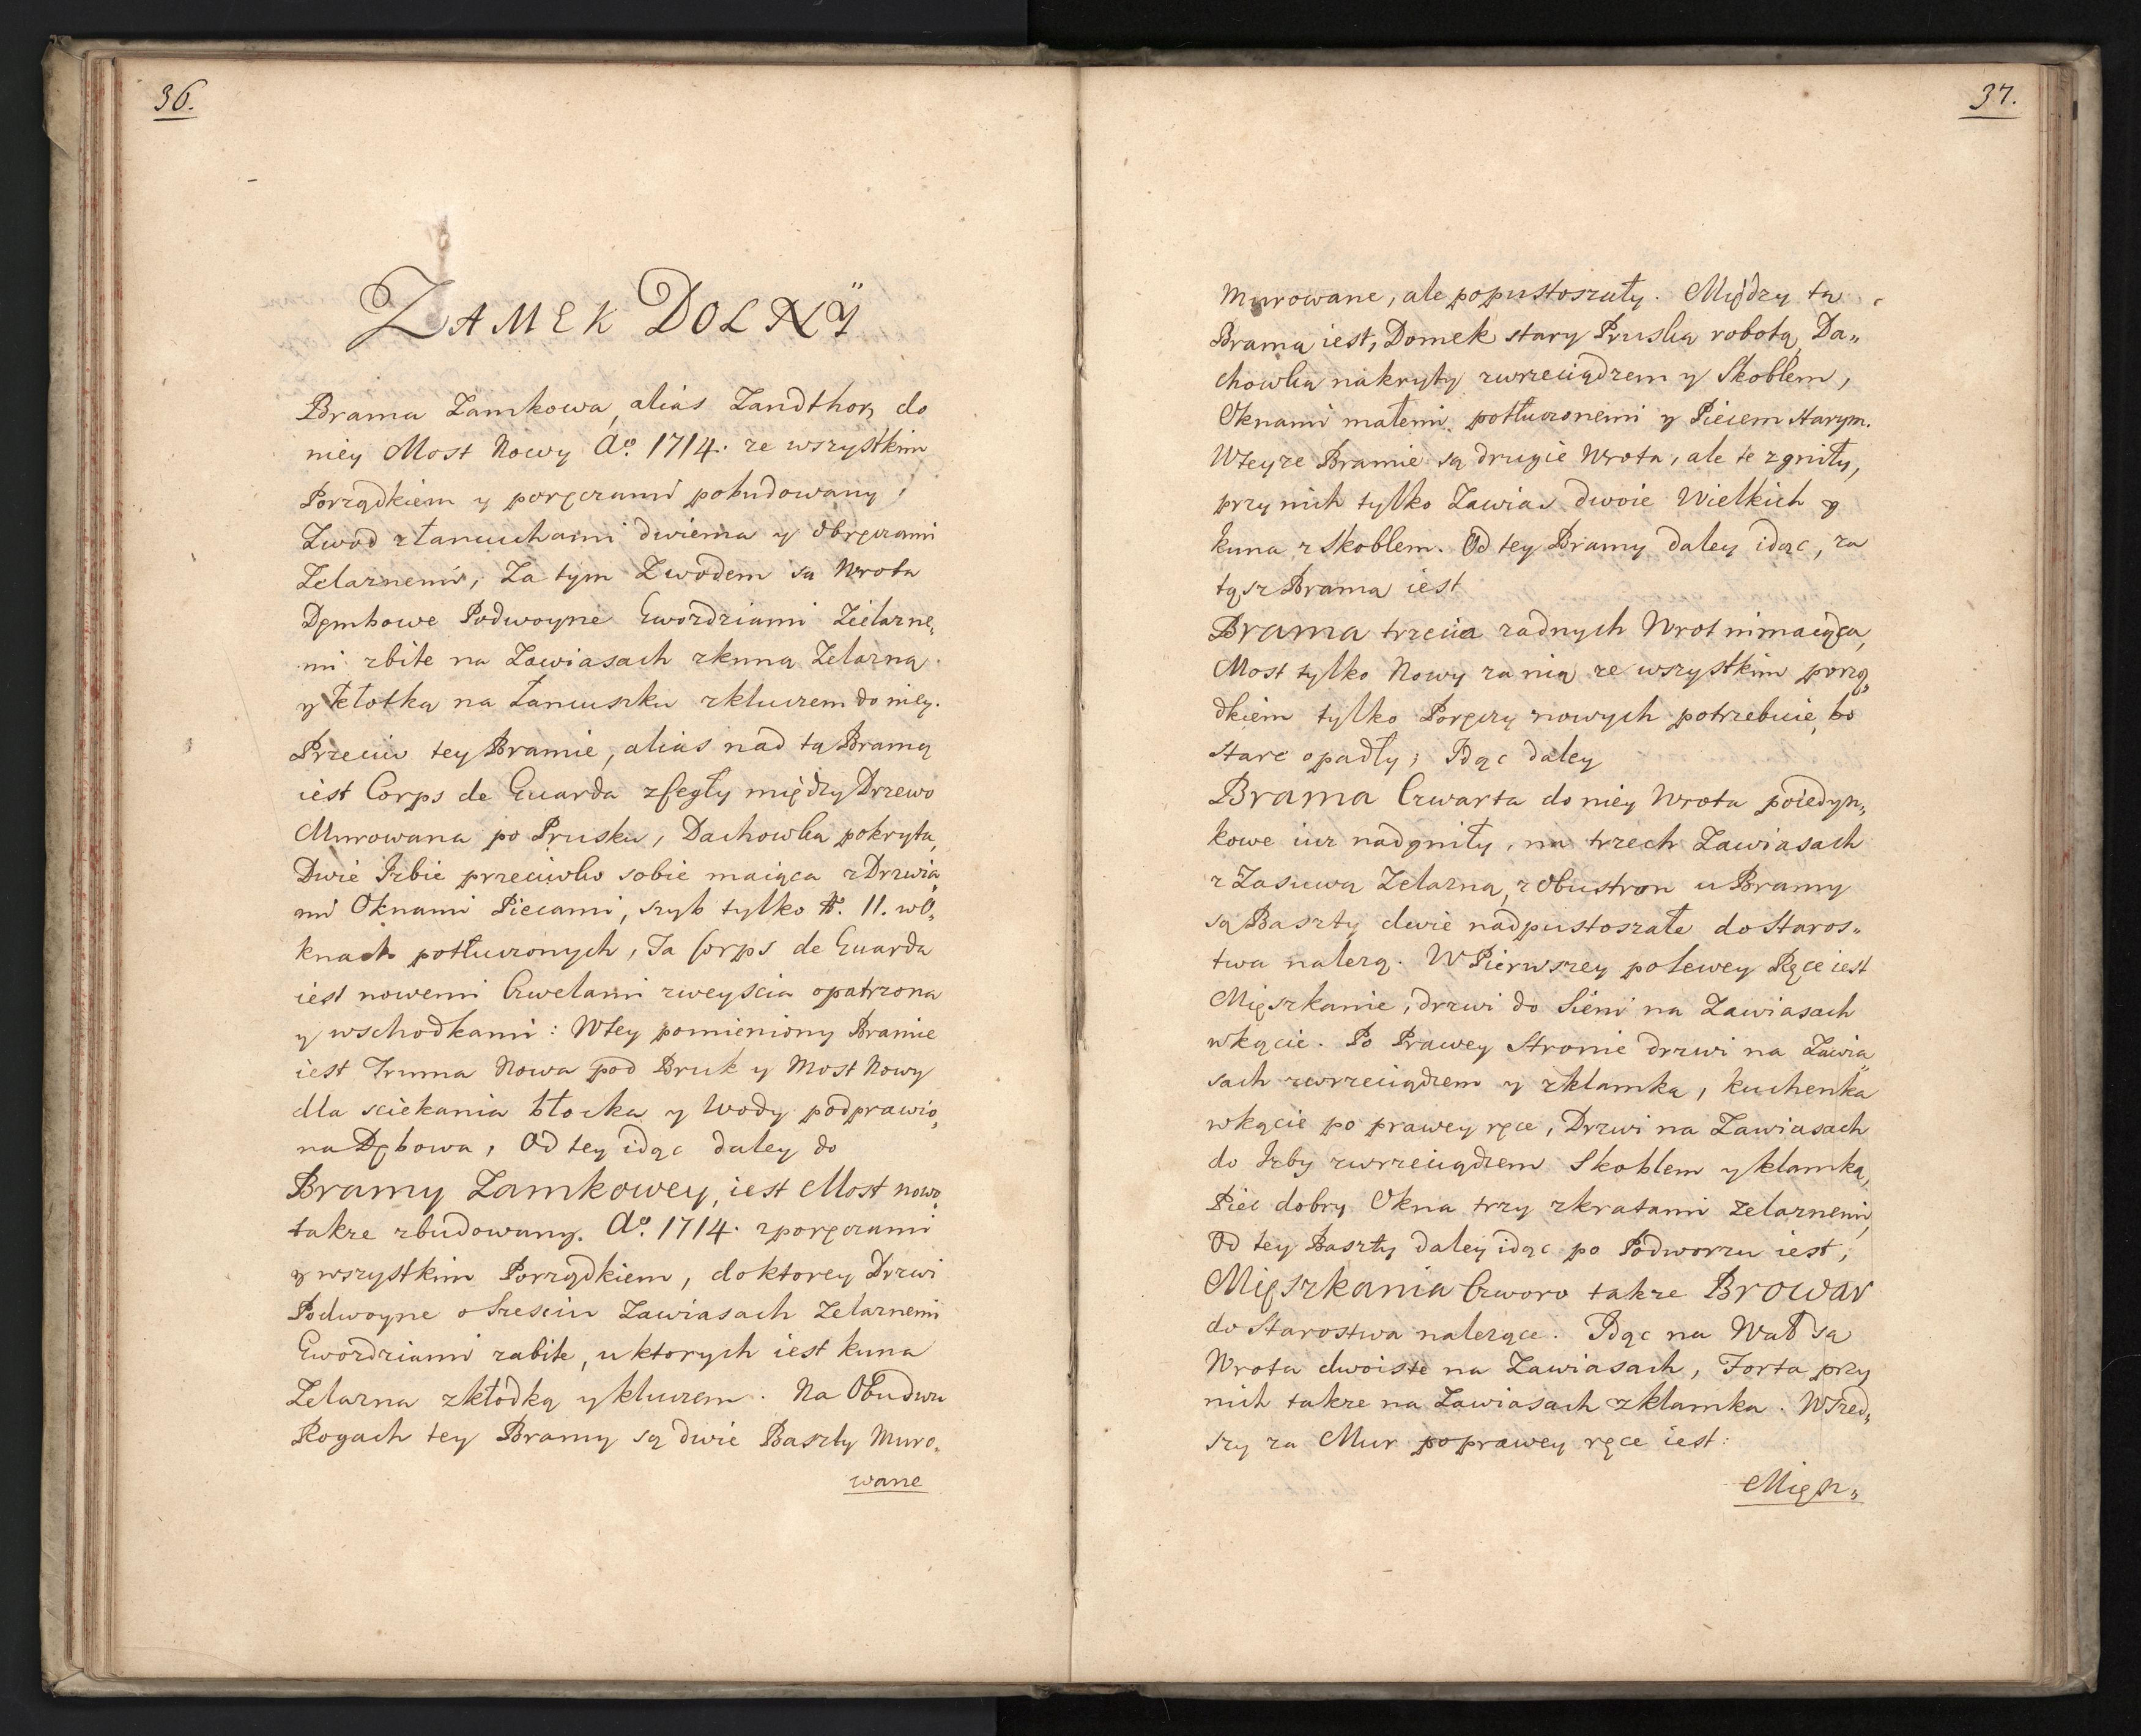 36.
ZAMEK DOLNÿ
Brama Zamkowa, alias Zandthor, do
niey Most Nowy Aº. 1714. ze wszystkim
Porządkiem y poręczami pobudowany,
Zwod złancuchami dwiema y obręczami
Zelaznemi, Za tym Zwodem są Wrota
Dęmbowe Podwoyne Gwozdziami Zielazne„
mi zbite na Zawiasach zkuną Zelazną
y kłotką na Łancuszku zkluczem do niey.
Przeciw tey Bramie, alias nad tą Bramą
iest Corps de Guarda zCegły między Drzewo
Murowana po Prusku, Dachowką pokryta,
Dwie Izbie przeciwko sobie maiąca zDrzwia„
mi Oknami Piecami, szyb tylko N. 11. wO„
knach potłuczonych, Ta Corps de Guarda
iest nowemi Cwelami zweyscia opatrzona
y wschodkami: Wtey pomieniony Bramie
iest Truma Nowa pod Bruk y Most Nowy
dla sciekania błocka y Wody podprawio„
na Dębowa, Od tey idąc daley do
Bramy Zamkowey, iest Most nowo„
takze zbudowany. Aº. 1714. zporęczami
y wszystkim Porządkiem, do ktorey Drzwi
Podwoyne o Szesciu Zawiasach Zelaznemi
Gwozdziami zabite, u ktorych iest kuna
Zelazna zkłódką y kluczem. Na Obudwu
Rogach tey Bramy są dwie Baszty Muro„
wane
37.
Murowane, ale popustoszały. Między tą
Bramą iest, Domek stary Pruską robotą, Da„
chowką nakryty zwrzeciądzem y Skoblem,
Oknami małemi potłuczonemi y Piecem starym.
Wteyze Bramie są drugie Wrota, ale te zgniły,
przy nich tylko Zawias dwoie Wielkich y
kuna z Skoblem. Od tey Bramy daley idąc, za
tąsz Brama iest
Brama trzecia zadnych Wrot nimaiąca,
Most tylko Nowy za nią ze wszystkim porzą„
dkiem tylko Poręczy nowych potrzebuie, bo
stare opadły; Idąc daley
Brama Czwarta do niey Wrota poiedyn„
kowe iuz nadgniły, na trzech Zawiasach
z Zasuwą Zelazną, z obustron u Bramy
są Baszty dwie nadpustoszałe do Staros„
twa nalezą. W Pierwszey po lewey Ręce iest
Mięszkanie, drzwi do Sieni na Zawiasach
wkącie. Po Prawey Stronie drzwi na Zawia„
sach zwrzeciądzem y zklamką, kuchenka
wkącie po prawey ręce, Drzwi na Zawiasach
do Izby zwrzeciądzem Skoblem y klamką,
Piec dobry Okna trzy zkratami zelaznemi,
Od tey Baszty daley idąc po Podworzu iest;
Mięszkania Czworo takze Browar
do Starostwa nalezące. Idąc na Wał są
Wrota dwoiste na Zawiasach, Forta przy
nich takze na Zawiasach zklamką. Wszed„
szy za Mur po prawey ręce iest:
Mięsz„